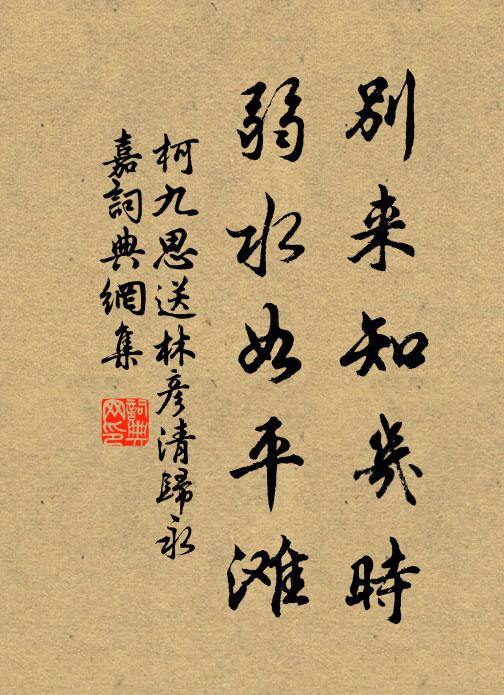 别来知几時
弱水如平滩
柯九思送林彦清歸永
嘉詞典網集
詞典
网印